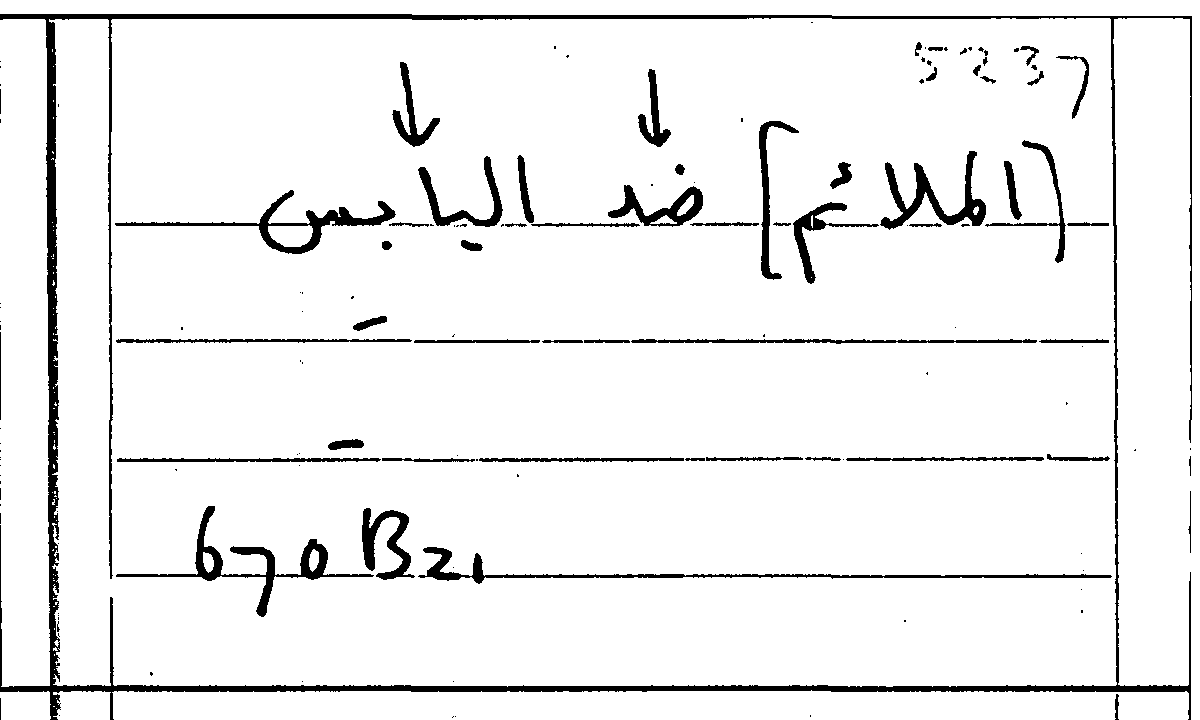 5237
[الملائم] ضد اليابس
–
–
670 B21